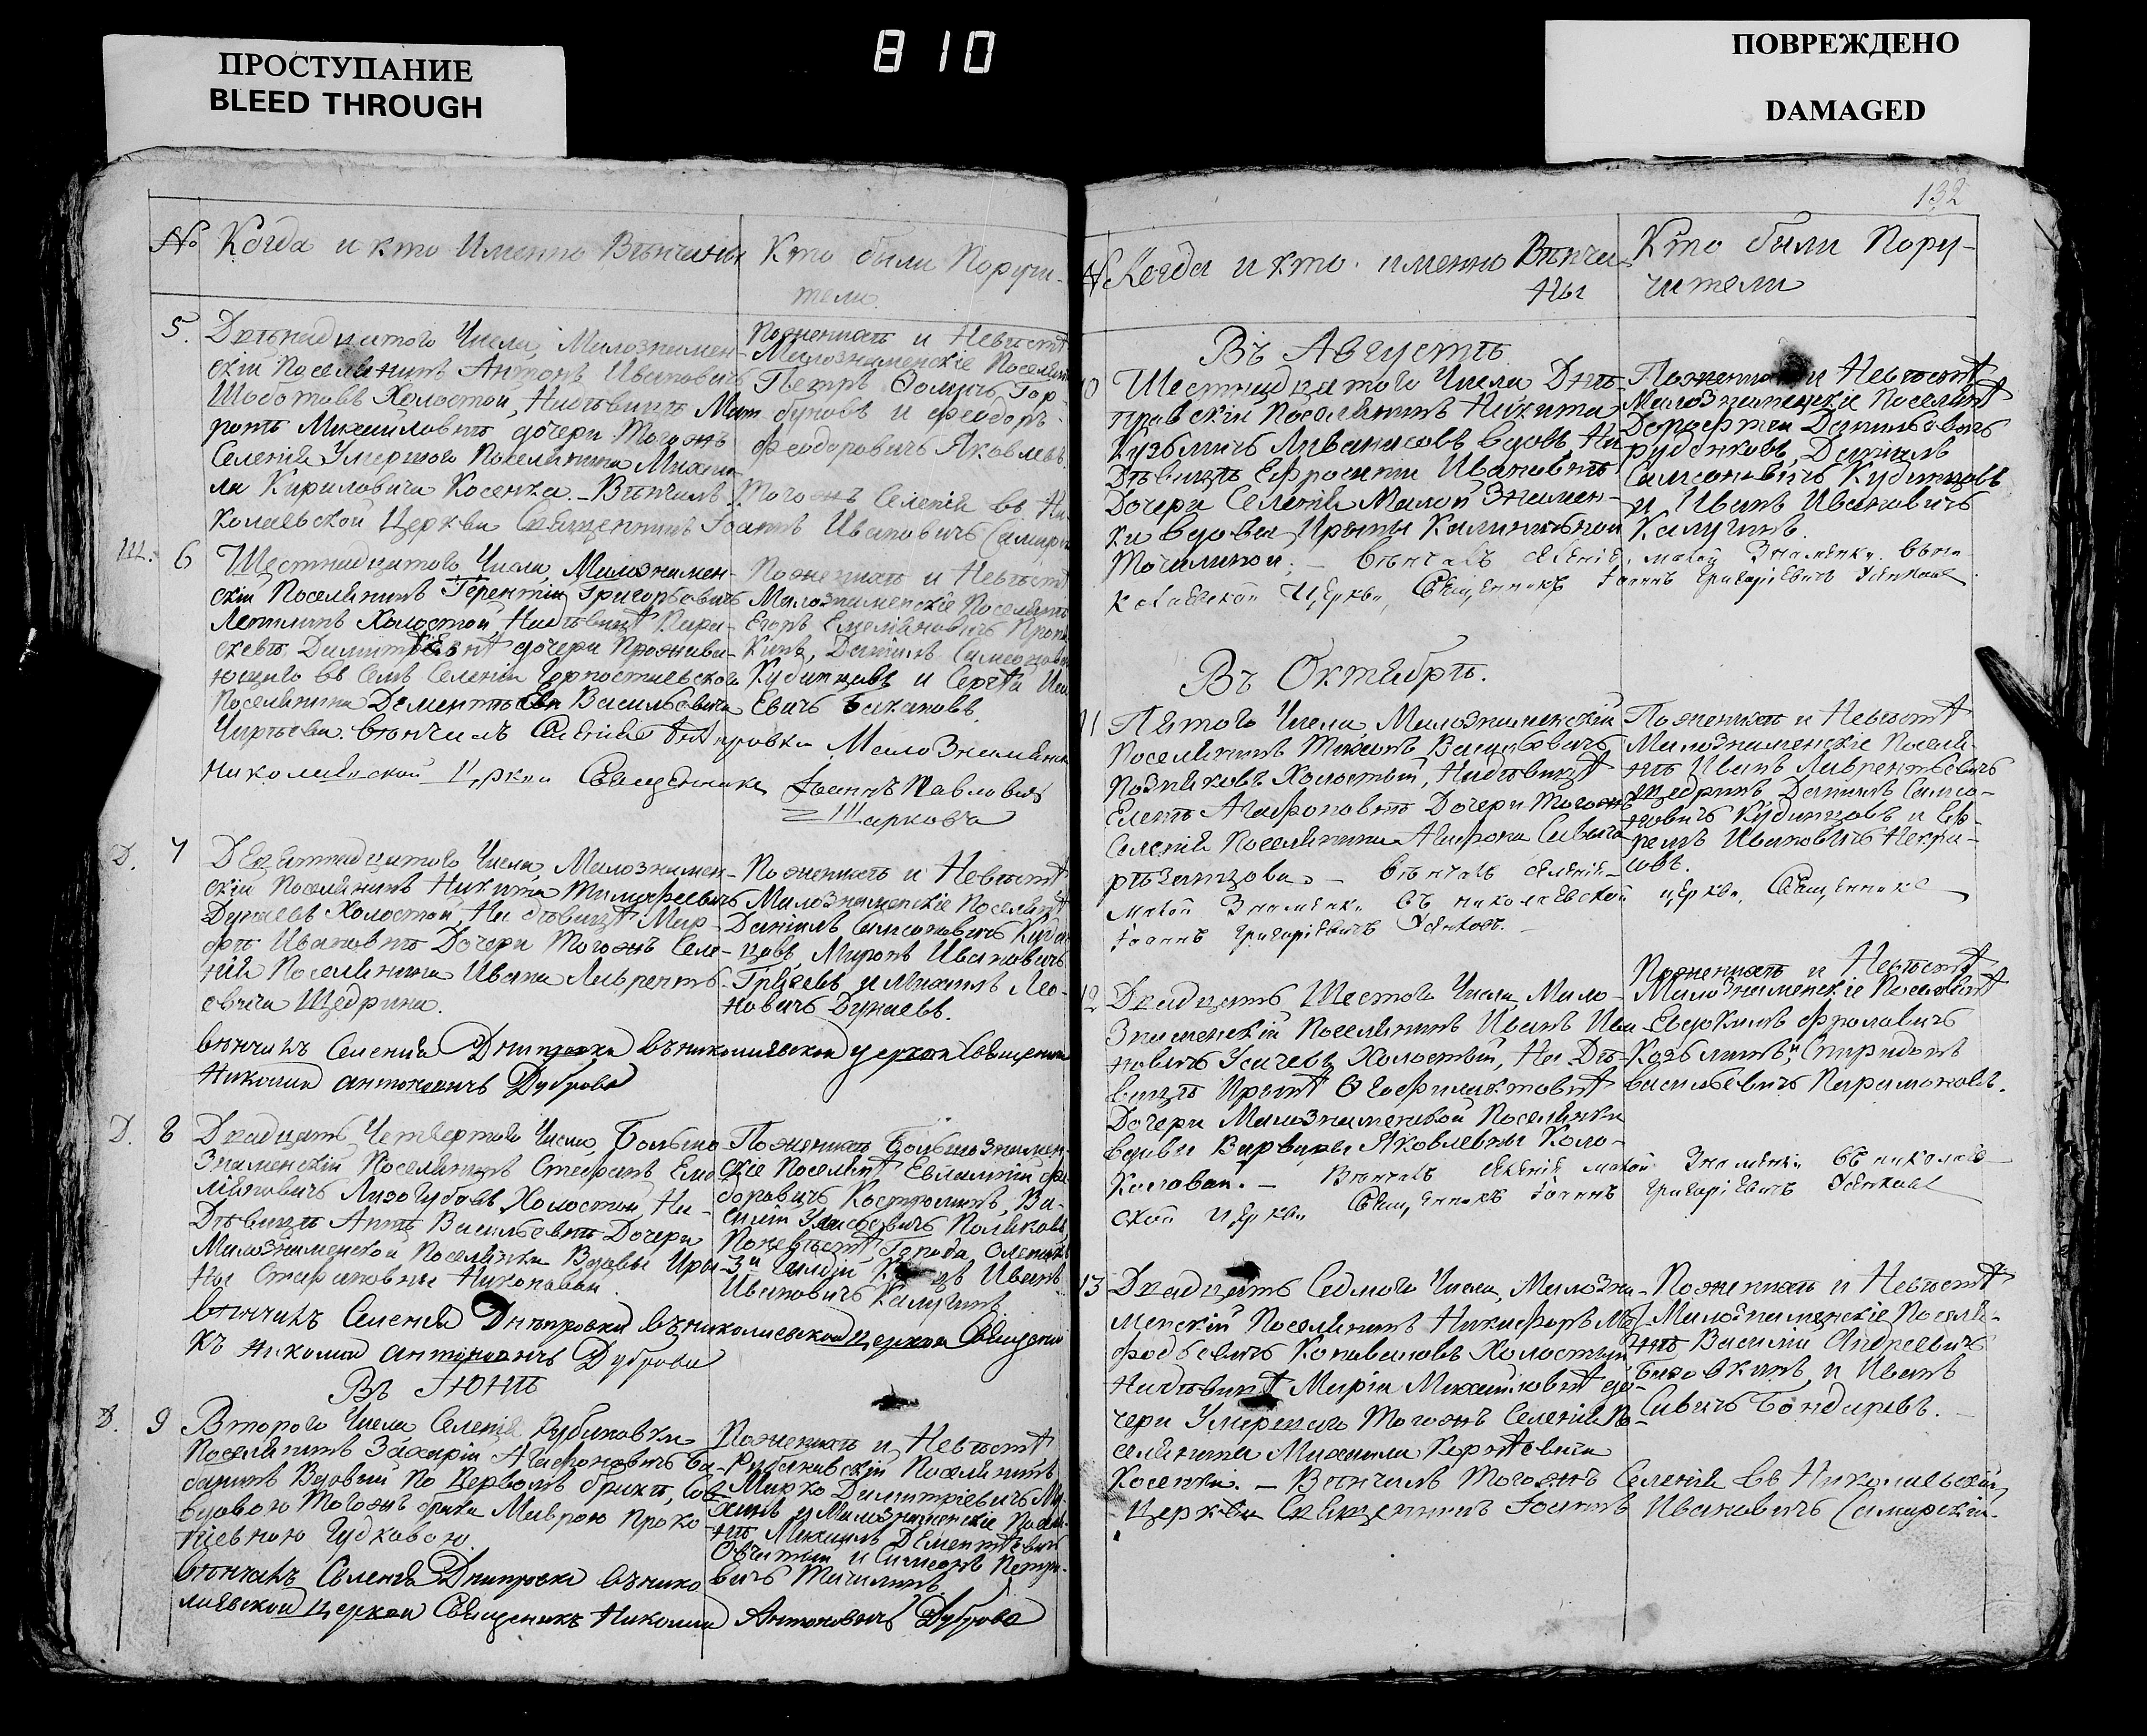 ПРОСТУПАНИЕ
BLEED THROUGH
810
ПОВРЕЖДЕНО
DAMAGED
№ Когда и кто Именно Вѣнчаны
Кто были Поручи-
тели
5. Двѣнадцатого Числа, Малознамен-
скій Поселянинъ Антонъ Ивановичъ
Шаботовъ Холостой, На дѣвицѣ Мат-
ронѣ Михайловнѣ дочери Тогожъ
Селенія Умершого Поселянина Михаи-
ла Кириловича Косенка. - Вѣнчалъ Тогожъ Селенія въ Ни-
колаевской Церкви Священникъ Іоаннъ Ивановичъ Самарскій
По женихѣ и Невѣстѣ
Малознаменскіе Поселянѣ
Петръ Фомичъ Гор-
буновъ и Феодоръ
Феодоровичъ Яковлевъ.
Ш. 6 Шестнадцатого Числа, Малознамен-
скій Поселянинъ Терентій Григорьевичъ
Холостой На дѣвицѣ Пара-
скевѣ Димитрѣевнѣ дочери Прожива-
ющаго въ семъ Селеніи Горностаевского
Поселянина Дементѣева Васильевича
вѣнчалъ Селенія Днѣпровки Мало Знаменки
Николаевской Церкви Священникъ Іоаннъ Павловичъ
Шаркова
По женихѣ и Невѣстѣ
Малознаменскіе Поселянѣ
Егоръ Емеліановичъ
Даніилъ Самсонович
Кудинцовъ и Сергѣй
евичъ Бахановъ.
Д. 7 Девятнадцатого Числа, Малознамен-
скій Поселянинъ Никита Тимофеевичъ
Дунаевъ Холостой, На дѣвицѣ Мар-
фѣ Ивановнѣ Дочери Тогожъ Селе-
нія Поселянина Ивана Лаврентѣ-
евича Щедрина.
вѣнчалъ Селенія Днипровки въ николаевской церкви Священникъ
Николай антоновичъ Дуброва
По женихѣ и Невѣстѣ
Малознаменскіе Поселянѣ
Даніилъ Самсоновичъ Кудин-
цовъ, Миронъ Ивановичъ
Грачевъ и Михаилъ Лео-
новичъ Дунаевъ.
Д. 8 Двадцать Четвертого Числа, Больше-
Знаменскій Поселянинъ Стефанъ Еме-
ліановичъ Лизогубовъ Холостой, На
Дѣвицѣ Аннѣ Васильевнѣ Дочери
Малознаменской Поселянки Вдовы Ири-
ны Стефановны Никоновой
вѣнчалъ Селенія Днѣпровки въ николаевской церкви Священни-
къ николай антоновичъ Дуброва
По женихѣ Большознамен-
скіе Поселянѣ Евлампій Фе-
доровичъ Костроминъ, Ва-
силій Поляковъ
По невѣстѣ, Города
3й Гильдіи Купецъ Иванъ
Ивановичъ Калугинъ.
Въ Іюнѣ
Д. 9 Второго Числа Селенія Рубановки
Поселянинъ Захарій Агафоновичъ Ба-
банинъ Вдовый по Первомъ бракѣ, Съ
вдовою Тогожъ брака Маврою Проко-
піевною Гудковою.
вѣнчалъ Селенія Днипровки въ нико
лаевской церкви Священикъ Николай Антоновичъ Дуброва
По женихѣ и Невѣстѣ
Рубановскій Поселянинъ
Марко Димитріевичъ
и Малознаменскіе Поселя-
нѣ Михаилъ Дементѣевичъ
и Симеонъ Петро-
вичъ Точилинъ.
132
№ Когда и кто именно Вѣнча-
ны
Кто были Пору-
чители
Въ Августѣ
10 Шестнадцатого Числа Днѣ-
провскій Поселянинъ Никита
Кузьмичъ Ливанисовъ вдовъ, На
Дѣвицѣ Ефросиніи Ивановнѣ
Дочери Селенія Малой Знамен-
ки вдовы Ирины Калиниковной
Точилиной. - вѣнчалъ селенія малой Знаменки въ ни
колаевской Церкви, Священникъ Іоаннъ Григоріевичъ Усенковъ
По женихѣ и Невѣстѣ
Малознаменскіе Поселянѣ
Дорофей Данильевичъ
Рубанковъ, Даніилъ
Самсоновичъ Кудинцовъ
и Иванъ Ивановичъ
Калугинъ.
Въ Октябрѣ.
11 Пятого Числа, Малознаменскій
Поселянинъ Тихонъ Васильевичъ
Позняковъ Холостый, На дѣвицѣ
Еленѣ Агафоновнѣ Дочери Тогожъ
Селенія Поселянина Агафона Савича
рѣзанцова. - вѣнчалъ селенія
малой Знаменки въ николаевской церкви, Священникъ
Іоаннъ Григоріевичъ Усенковъ.
По женихѣ и Невѣстѣ
Малознаменскіе Поселя-
нѣ Иванъ Лаврентьевичъ
Щедринъ, Даніилъ Самсо-
новичъ Кудинцовъ и Еф-
ремъ Ивановичъ Некра-
совъ.
12 Двадцать Шестого Числа, Мало-
Знаменскій Поселянинъ Иванъ Ива-
новичъ Усачевъ Холостый, На Дѣ-
вицѣ Иринѣ Феофилактовнѣ
Дочери Малознаменской Поселянки
вдовы Варвары Яковлевны Коло-
коловой. - Вѣнчалъ селенія малой Знаменки въ николаев-
ской церкви Священникъ Іоаннъ Григоріевичъ Усенковъ
По женихѣ и Невѣстѣ
Малознаменскіе Поселянѣ
Евдокимъ Фроловичъ
Козьминъ, и Спиридонъ
васильевичъ Парамоновъ.
13 Двадцать Седмого Числа, Малозна-
менскій Поселянинъ Никифоръ Ме-
фодьевичъ Коноваловъ Холостый
На дѣвицѣ Маріи Михайловнѣ до-
чери Умершаго Тогожъ Селенія По-
селянина Михаила Корнѣевича
Косенка. - Вѣнчалъ Тогожъ Селенія въ Николаевской
Церкви Священникъ Іоаннъ Ивановичъ Самарскій.
По женихѣ и Невѣстѣ
Малознаменскіе Поселя-
нѣ Василій Андреевичъ
и Иванъ
Савичъ Бондаревъ.